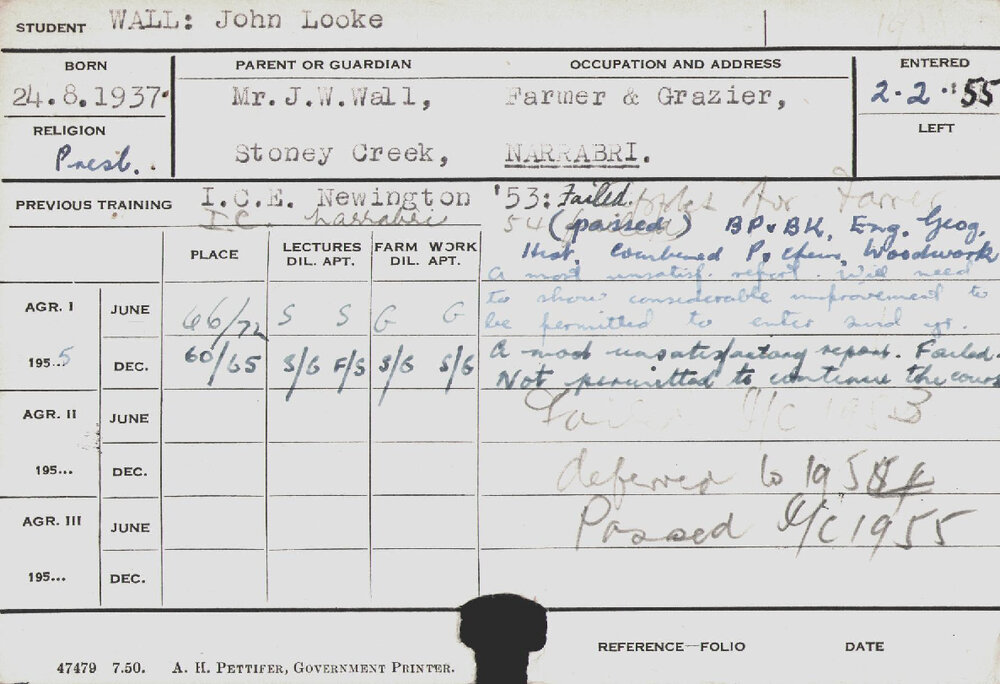 STUDENT WALL: John Looke
BORN PARENT OR GUARDIAN OCCUPATION AND ADDRESS ENTERED
24.8.1937. Mr.J.W.Wall, Farmer & Grazier, 2.2.'55
RELIGION LEFT
Presb.. Stoney Creek, NARRABRI.
PREVIOUS TRAINING I.C.E. Newington '53: Failed. for Farrer
I.C. Narrabri 54 (passed) BP & BK, Eng. Geog,
PLACE LECTURES FARM WORK Hist. Combined P & Chem, Woodwork
DIL. APT. DIL. APT. A most unsatisf. report. Will need
AGR. I JUNE 66/72 S S G G to show considerable improvement to
be permitted to enter 2nd yr.
195..5 DEC. 60/65 S/G F/S S/G S/G A most unsatisfactory report. Failed.
Not permitted to continue the cours
AGR. II JUNE Failed I/C 1953
195... DEC. deferred to 1954
AGR. III JUNE Passed I/C 1955
195... DEC.
REFERENCE—FOLIO DATE
47479 7.50. A. H. PETTIFER, GOVERNMENT PRINTER.